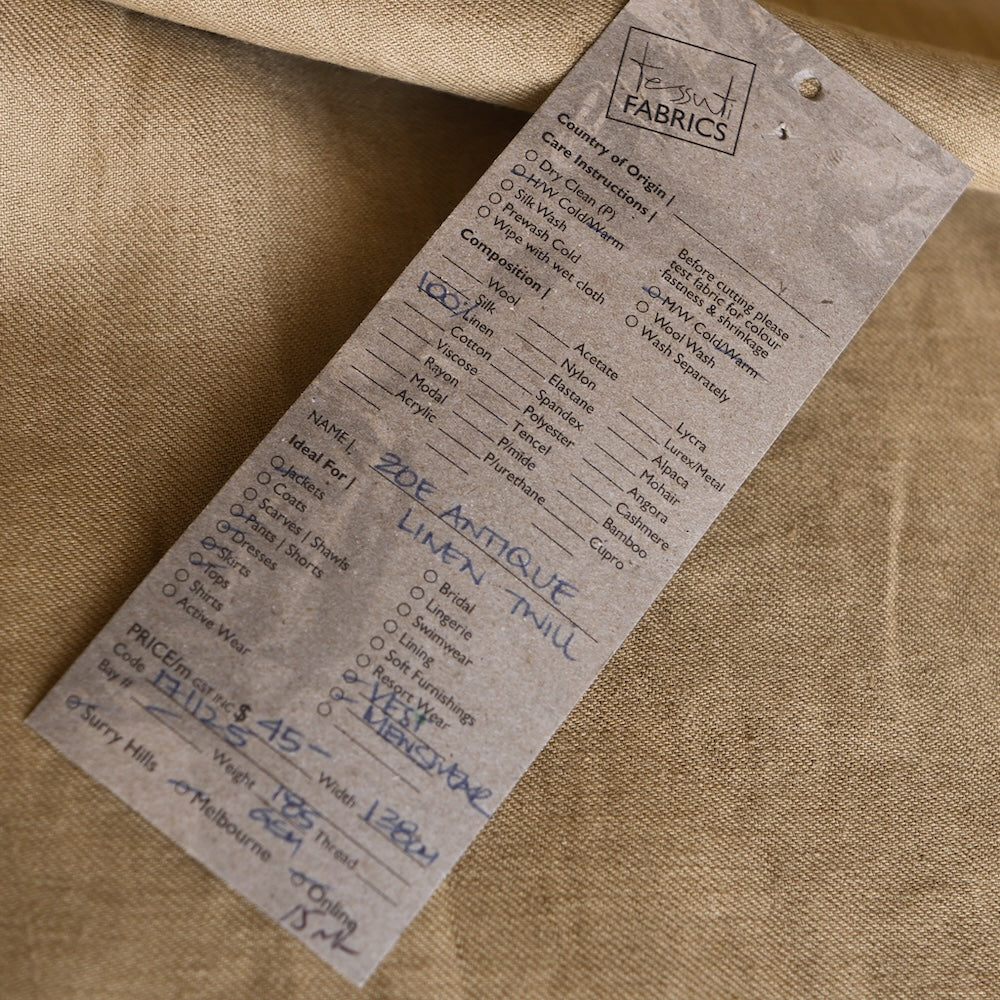 tessuti
FABRICS
Country of Origin |
Care Instructions |
Dry Clean (P)
H/W Cold/Warm
Silk Wash
Prewash Cold
Wipe with wet cloth
Before cutting please
test fabric for colour
fastness & shrinkage
M/W Cold/Warm
Wool Wash
Wash Separately
Composition |
Wool
Silk
100% Linen
Cotton
Viscose
Rayon
Modal
Acrylic
Acetate
Nylon
Elastane
Spandex
Polyester
Tencel
P/mide
P/urethane
Lycra
Lurex/Metal
Alpaca
Mohair
Angora
Cashmere
Bamboo
Cupro
NAME | ZOE ANTIQUE
LINEN TWILL
Ideal For |
Jackets
Coats
Scarves | Shawls
Pants | Shorts
Dresses
Skirts
Tops
Shirts
Active Wear
Bridal
Lingerie
Swimwear
Lining
Soft Furnishings
Resort Wear
VEST
MENSWEAR
PRICE/m GST INC $ 45-
Code 17112.5
Width 138cm
Bay #
Weight 185
GSM
Thread
Surry Hills
Melbourne
Online